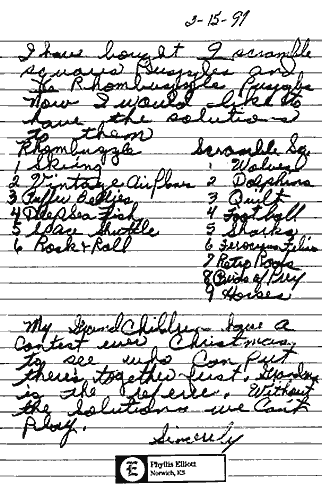 2-15-97
I have bought 9 scramble
squares Puzzles and
The Rhombuzzle Puzzle
Now I would like to
have the solutions
to them
Rhombuzzle Scramble Sq.
1 Skiing 1 Wolves
2 Vintage Airplanes 2 Dolphins
3 Puffer Bellies 3 Quilt
4 Deep Sea Fish 4 Football
5 Space Shuttle 5 Sharks
6 Rock & Roll 6 Ferocious Felines
7 Retro Rods
8 Birds of Prey
9 Horses
My Grand Children have a
Contest over Christmas
to see who Can Put
theirs together first.
is the referee. Without
the solutions we Can't
Play.
Sincerely
E Phyllis Elliott
Norwich, KS